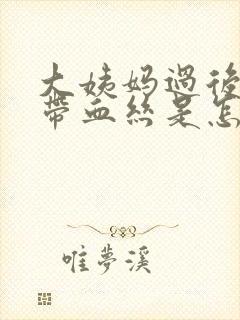 大姨妈過後
帶血絲是怎
唯夢溪